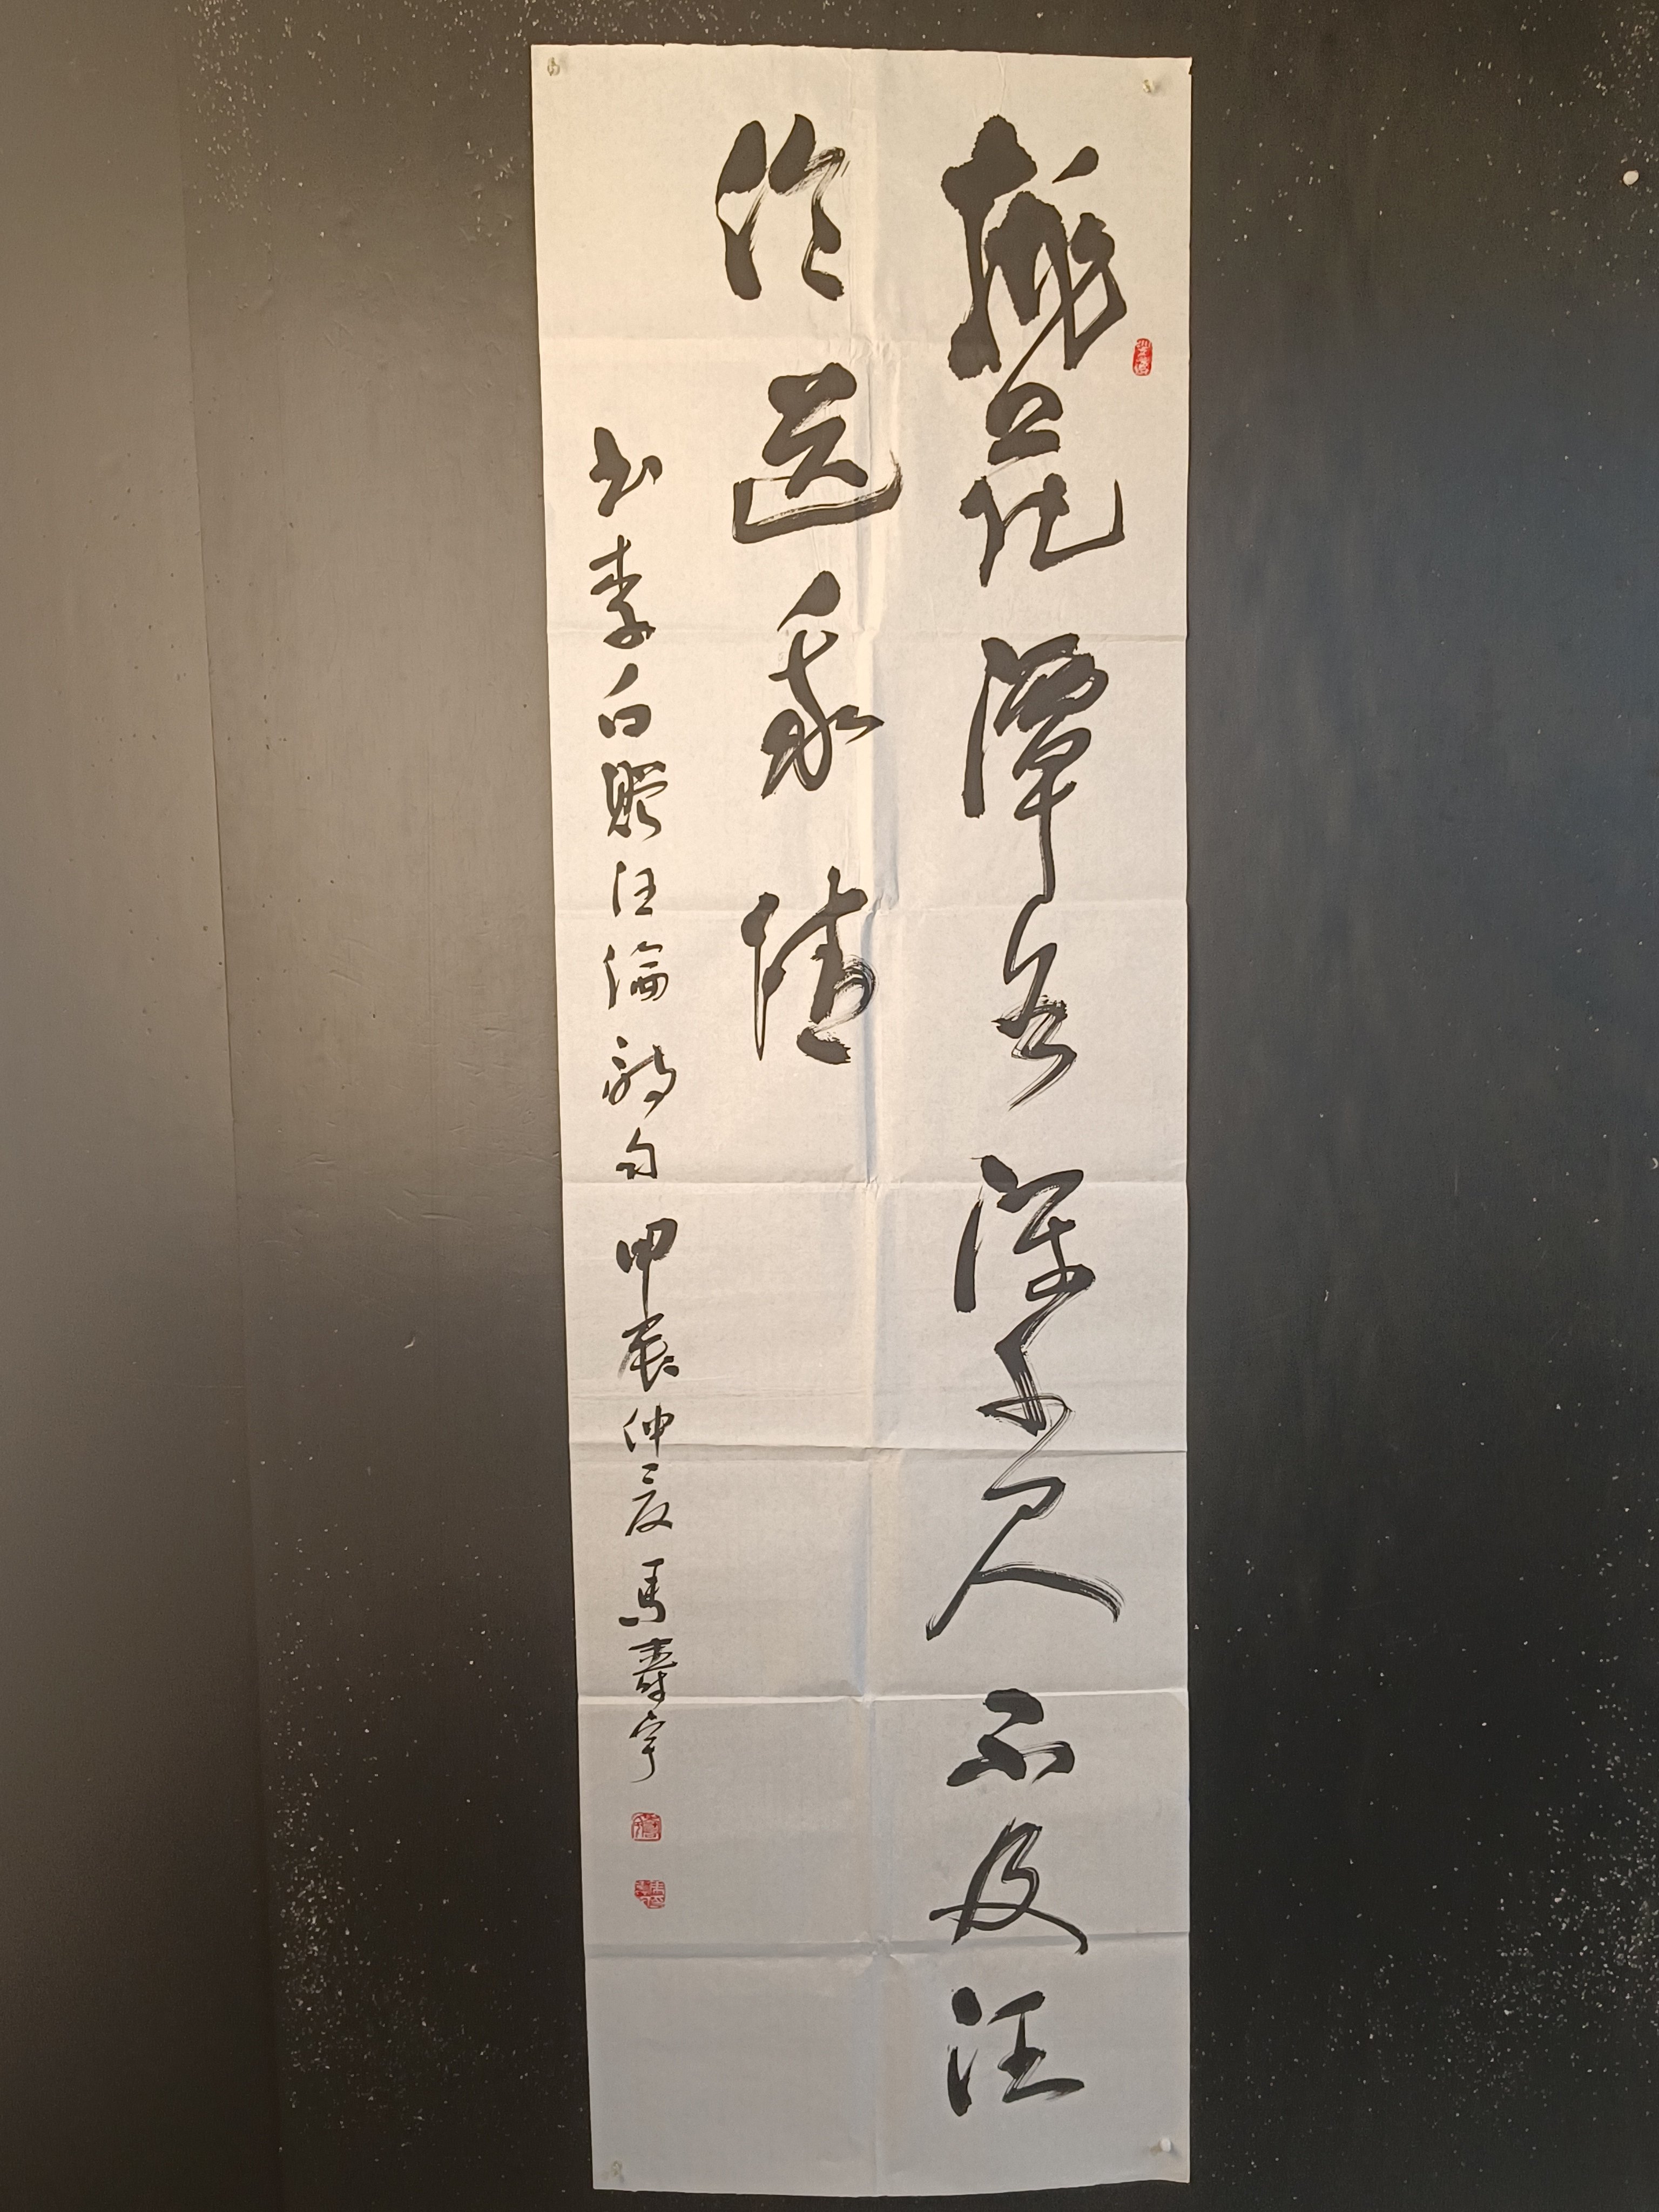 桃花潭水深千尺不及汪
倫送我情
书李白赠汪倫詩句 甲辰仲夏 馬壽宇